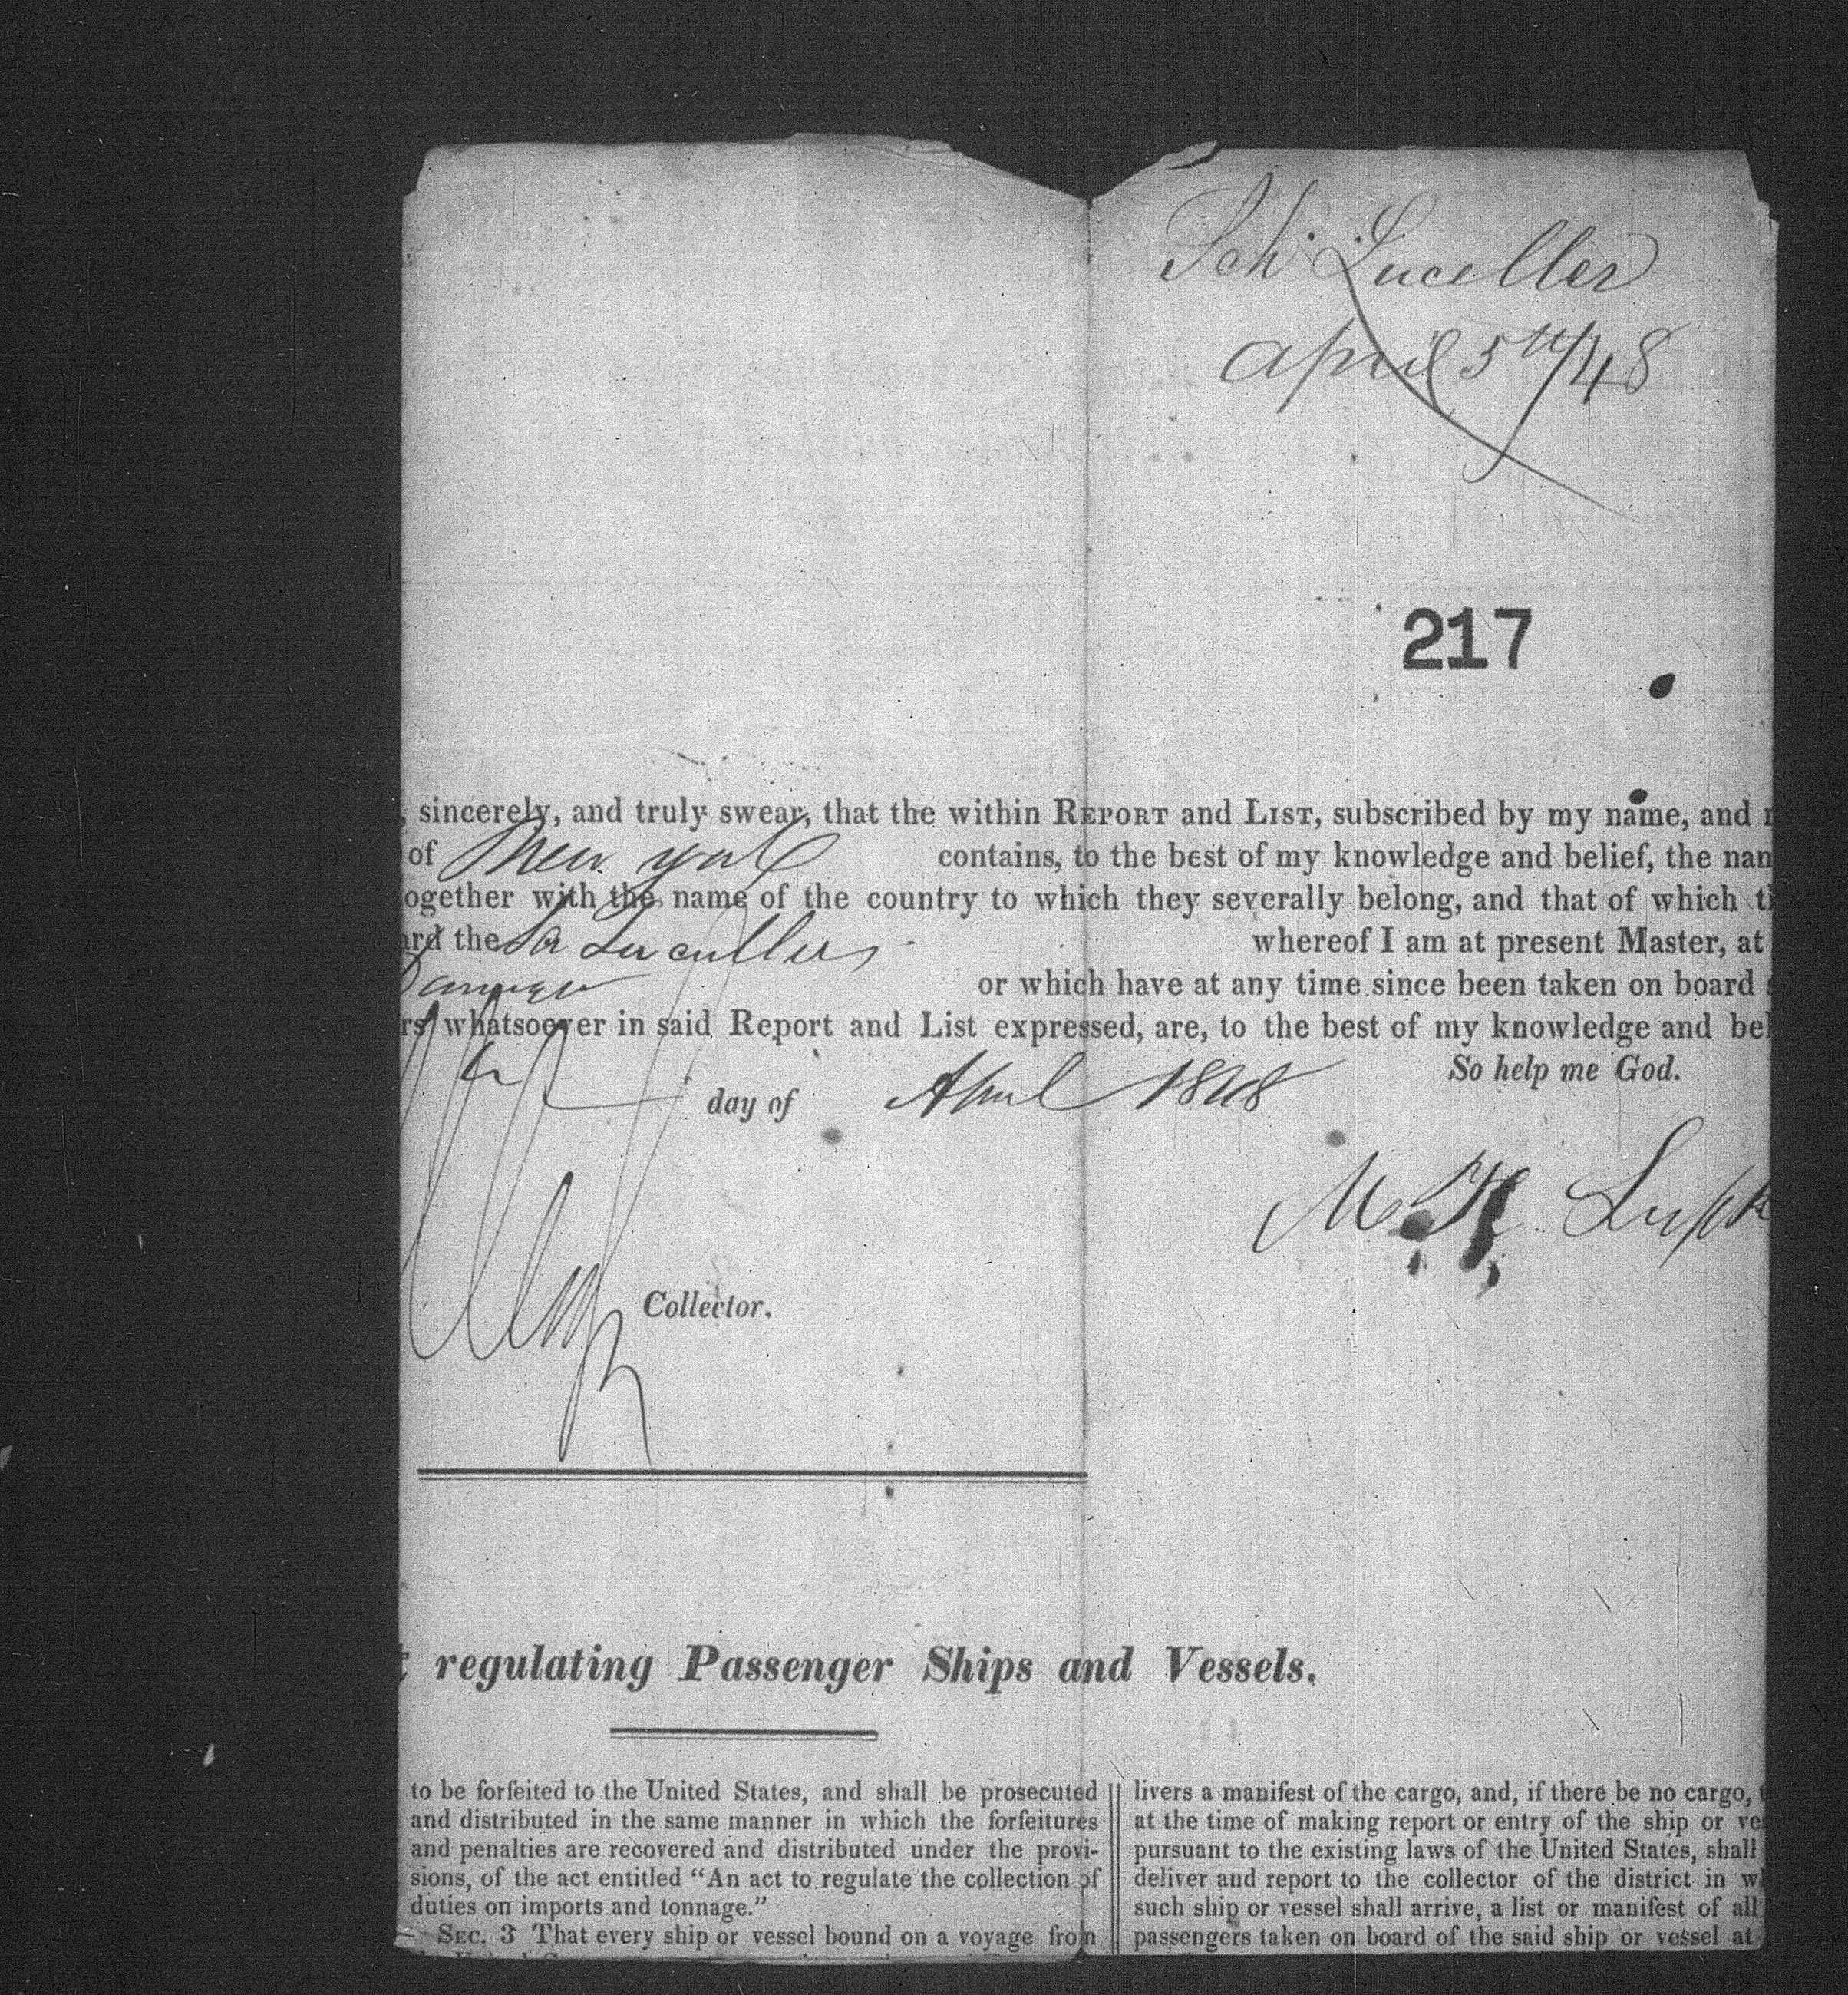 Sch. Luceller
April 5th/48
217
, sincerely, and truly swear, that the within REPORT and LIST, subscribed by my name, and
of New York contains, to the best of my knowledge and belief, the nam
ogether with the name of the country to which they severally belong, and that of which th
ard the Lucullus whereof I am at present Master, at
or which have at any time since been taken on board
rs whatsoever in said Report and List expressed, are, to the best of my knowledge and bel
So help me God.
day of April 1848
M H Lupk
Collector.
t regulating Passenger Ships and Vessels.
to be forfeited to the United States, and shall be prosecuted
and distributed in the same manner in which the forfeitures
and penalties are recovered and distributed under the provi-
sions, of the act entitled "An act to regulate the collection of
duties on imports and tonnage."
SEC. 3 That every ship or vessel bound on a voyage from
livers a manifest of the cargo, and, if there be no cargo, t
at the time of making report or entry of the ship or ves
pursuant to the existing laws of the United States, shall
deliver and report to the collector of the district in w
such ship or vessel shall arrive, a list or manifest of all
passengers taken on board of the said ship or vessel at